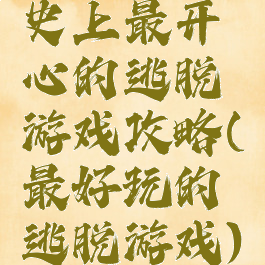 史上最开
心的逃脱
游戏攻略(
最好玩的
逃脱游戏)